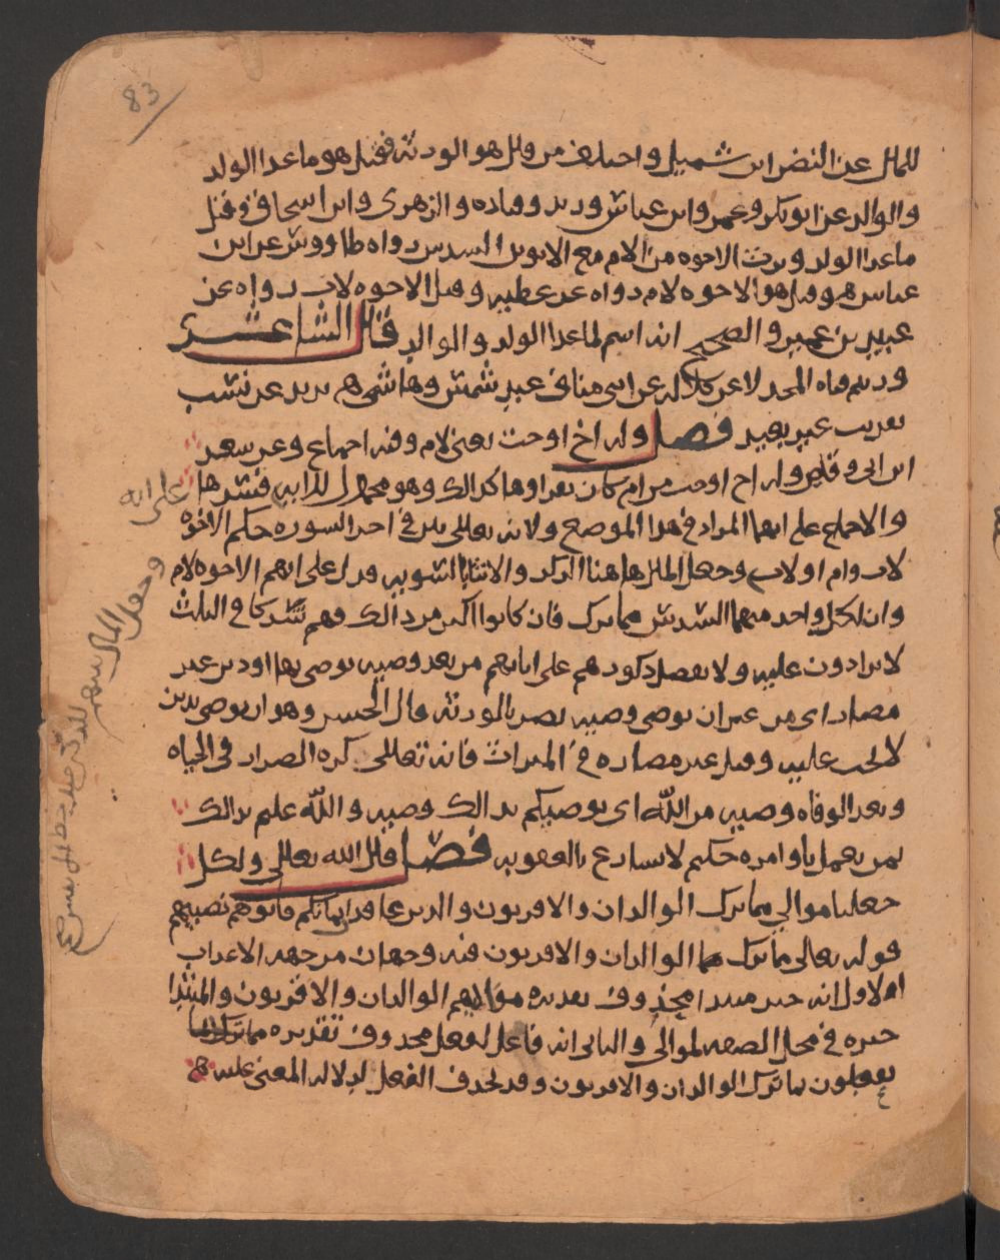 83
للمال عن النضر ابن شميل واختلف من قال هو الورثة فقيل هو ما عدا الولد
والوالد عن ابو بكر وعمر وابن عباس وزيد وقتاده والزهرى وابن اسحاق وقيل
ما عدا الولد ويرث الاخوه من الام مع الابوين السدس رواه طاووس عن ابن
عباس هو وقيل هو الاخوه لام رواه عن عطيه وقيل الاخوه لاب رواه عن
عبيد بن عمير والصحيح انه اسم لما عدا الولد والوالد قال الشاعر
ورثتم قناه المجد لا عن كلاله عن ابنى مناف عبد شمس وهاشم هم يريد عن نسب
قريب غير بعيد فصل وله اخ او اخت يعنى لام وفيه اجماع وعن سعد
ابن ابى وقاص وله اخ او اخت من ام كان يقراوها كذالك وهو محمول للدايه فسرها
على انه
والاجماع على انهما المراد فى هذا الموضع ولانه تعالى بين فى اخر السوره حكم الاخوة
لاب وام او لاب وجعل المال هاهنا الذكر والانثا بالسويه فدل على انهم الاخوه لام
وان لكل واحد منهما السدس مما ترك فان كانوا اكثر من ذالك فهم شركا فى الثلث
لا يزادون عليه ولا يفضل ذكورهم على اناثهم من بعد وصيه يوصى بها او دين غير
مضار اى من غير ان يوصى وصيه تضر بالورثة قال الحسن وهو ان يوصى بدين
لا يجب عليه وقيل غير مضاره فى الميراث فانه تعالى كره الضرار فى الحياه
وبعد الوفاه وصيه من الله اى يوصيكم بذالك وصيه والله عليم بذالك
بمن يعمل باوامره حكيم لا يسارع بالعقوبه فصل قال الله تعالى ولكل
جعلنا موالى مما ترك الوالدان والاقربون والذين عاقدت ايمانكم فاتوهم نصيبهم
قوله تعالى مما ترك الوالدان والاقربون فيه وجهان من جهه الاعراب
الاول انه خبر مبتدا محذوف تقديره مواليهم الوالدان والاقربون والمبتدا
خبره فى محل الصفه لموالى والثانى انه فاعل لفعل محذوف تقديره مما ترك
يعطون ما ترك الوالدان والاقربون وقد يحذف الفعل لدلاله المعنى عليه
وجعل المال بينهم للذكر مثل حظ الانثيين